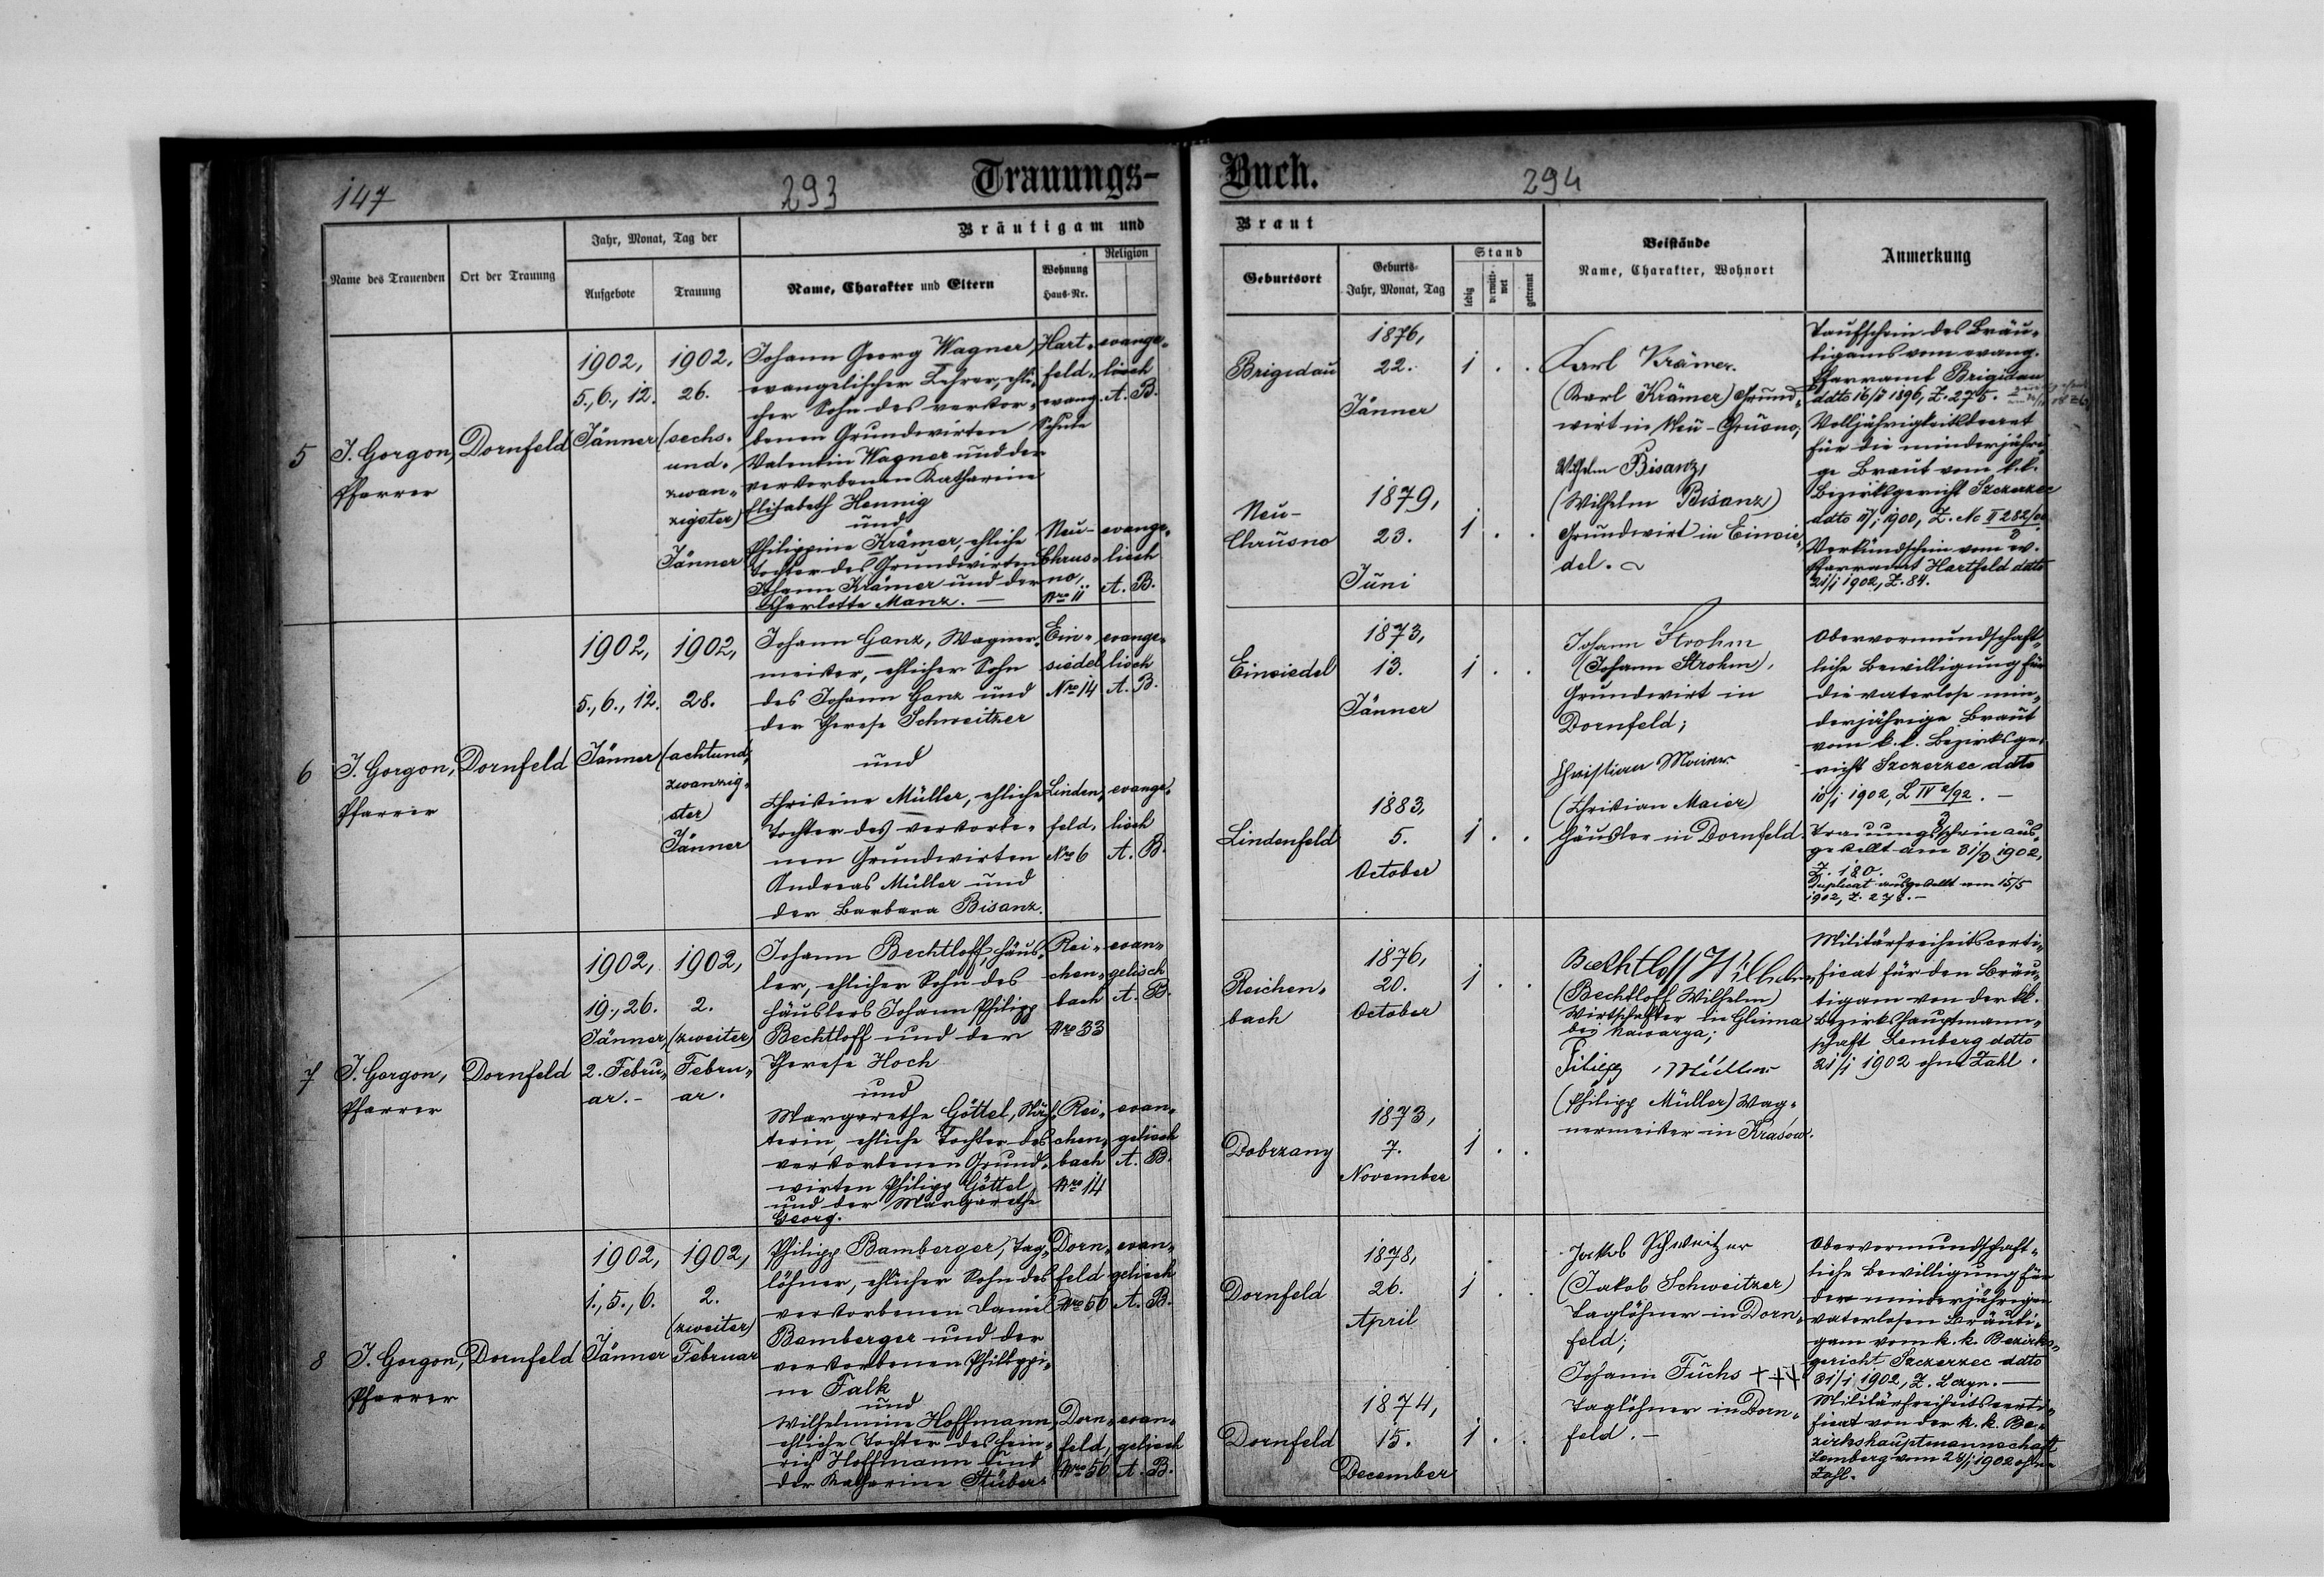 147
293
Trauungs-
Buch.
294
Bräutigam und
Braut
Name des Trauenden
Ort der Trauung
Jahr, Monat, Tag der
Aufgebote
Trauung
Name, Charakter und Eltern
Wohnung
Haus-Nr.
Religion
Geburtsort
Geburts-
Jahr, Monat, Tag
Stand
ledig
verwitt-
wet
getrennt
Beistände
Name, Charakter, Wohnort
Anmerkung
5
J. Gorgon,
Pfarrer
Dornfeld
1902,
5., 6., 12.
Jänner
1902,
26.
(sechs-
und-
zwan-
zigster)
Jänner
Johann Georg Wagner,
evangelischer Lehrer, ehli-
cher Sohn des verstor-
benen Grundwirten
Valentin Wagner und der
verstorbenen Katharine
Elisabeth Hennig
und
Philippine Krämer, ehliche
Tochter des Grundwirten
Johann Krämer und der
Charlotte Manz. —
Hart-
feld,
evang.
Schule
Neu-
Chrus-
no,
Nro 11
evange-
lisch
A. B.
evange-
lisch
A. B.
Brigidau
1876,
22.
Jänner
1 . .
Neu-
Chrusno
1879,
23.
Juni
1 . .
Karl Krämer.
(Karl Krämer) Grund-
wirt in Neu-Chrusno;
Wilhelm Bisanz,
(Wilhelm Bisanz)
Grundwirt in Einsie-
del.
Taufschein des Bräu-
tigams vom evang.
Pfarramt Brigidau
ddto 16/5 1896, Z. 275.
Volljährigkeitsdecret
für die minderjähri-
ge Braut vom k. k.
Bezirksgericht Szczerzec
1900, Z. Nc II 282/00
Verkündschein vom ev.
Pfarramt Hartfeld ddto
21/1 1902, Z. 84.
6
J. Gorgon,
Pfarrer
Dornfeld
1902,
5., 6., 12.
Jänner
1902,
28.
(achtund-
zwanzig-
ster)
Jänner
Johann Ganz, Wagner-
meister, ehlicher Sohn
des Johann Ganz und
der Therese Schweitzer
und
Christine Müller, ehliche
Tochter des verstorbe-
nen Grundwirten
Andreas Müller und
der Barbara Bisanz.
Ein-
siedel
Nro 14
Linden-
feld,
Nro 6
evange-
lisch
A. B.
evange-
lisch
A. B.
Einsiedel
1873,
13.
Jänner
1 . .
Lindenfeld
1883,
5.
October
1 . .
Johann Strohm
(Johann Strohm),
Grundwirt in
Dornfeld;
Christian Maier
(Christian Maier)
Häusler in Dornfeld.
Obervormundschaft-
liche Bewilligung für
die vaterlose min-
derjährige Braut
vom k. k. Bezirksge-
richt Szczerzec ddto
10/1 1902,
Trauungsschein aus-
gestellt am 31/3 1902,
Z. 180.
Duplicat ausgestellt am 15/5
1902, Z. 278. —
7
J. Gorgon,
Pfarrer
Dornfeld
1902,
19., 26.
Jänner,
2. Febru-
ar. -
1902,
2.
(zweiter)
Febru-
ar.
Johann Bechtloff, Häus-
ler, ehlicher Sohn des
Häuslers Johann Philipp
Bechtloff und der
Therese Hoch
und
Margarethe Göttel,
ehliche Tochter des
verstorbenen Grund-
wirten Philipp Göttel
und der Margarethe
Georg.
Rei-
chen-
bach
Nro 33
Rei-
chen-
bach
Nro 14
evan-
gelisch
A. B.
evan-
gelisch
A. B.
Reichen-
bach
1876,
20.
October
1 . .
Dobrzany
1873,
7.
November
1 . .
Bechtloff Wilhelm
(Bechtloff Wilhelm)
Wirtschafter in Glinna
bei Nawarya;
Filipp Müller
(Philipp Müller) Wag-
nermeister in Krasów.
Militärfreiheitscerti-
ficat für den Bräu-
tigam von der kk.
Bezirkshauptmann-
schaft Lemberg ddto
21/1 1902 ohne Zahl.
8
J. Gorgon,
Pfarrer
Dornfeld
1902,
1., 5., 6.
Jänner
1902,
2.
(zweiter)
Februar
Philipp Bamberger, Tag-
löhner, ehlicher Sohn des
verstorbenen Daniel
Bamberger und der
verstorbenen Philippi-
ne Falk
und
Wilhelmine Hoffmann,
ehliche Tochter des Hein-
rich Hoffmann und
der Katharine Stüber.
Dorn-
feld
Nro 56
Dorn-
feld,
Nro 56
evan-
gelisch
A. B.
evan-
gelisch
A. B.
Dornfeld
1878,
26.
April
1 . .
Dornfeld
1874,
15.
December
1 . .
Jakob Schweitzer
(Jakob Schweitzer)
Taglöhner in Dorn-
feld;
Johann Fuchs +++
Taglöhner in Dorn-
feld. —
Obervormundschaft-
liche Bewilligung für
den minderjährigen
vaterlosen Bräuti-
gam vom k. k. Bezirks-
gericht Szczerzec ddto
31/1 1902,
Militärfreiheitscerti-
ficat von der k. k. Be-
zirkshauptmannschaft
Lemberg vom 28/1 1902 ohne
Zahl.